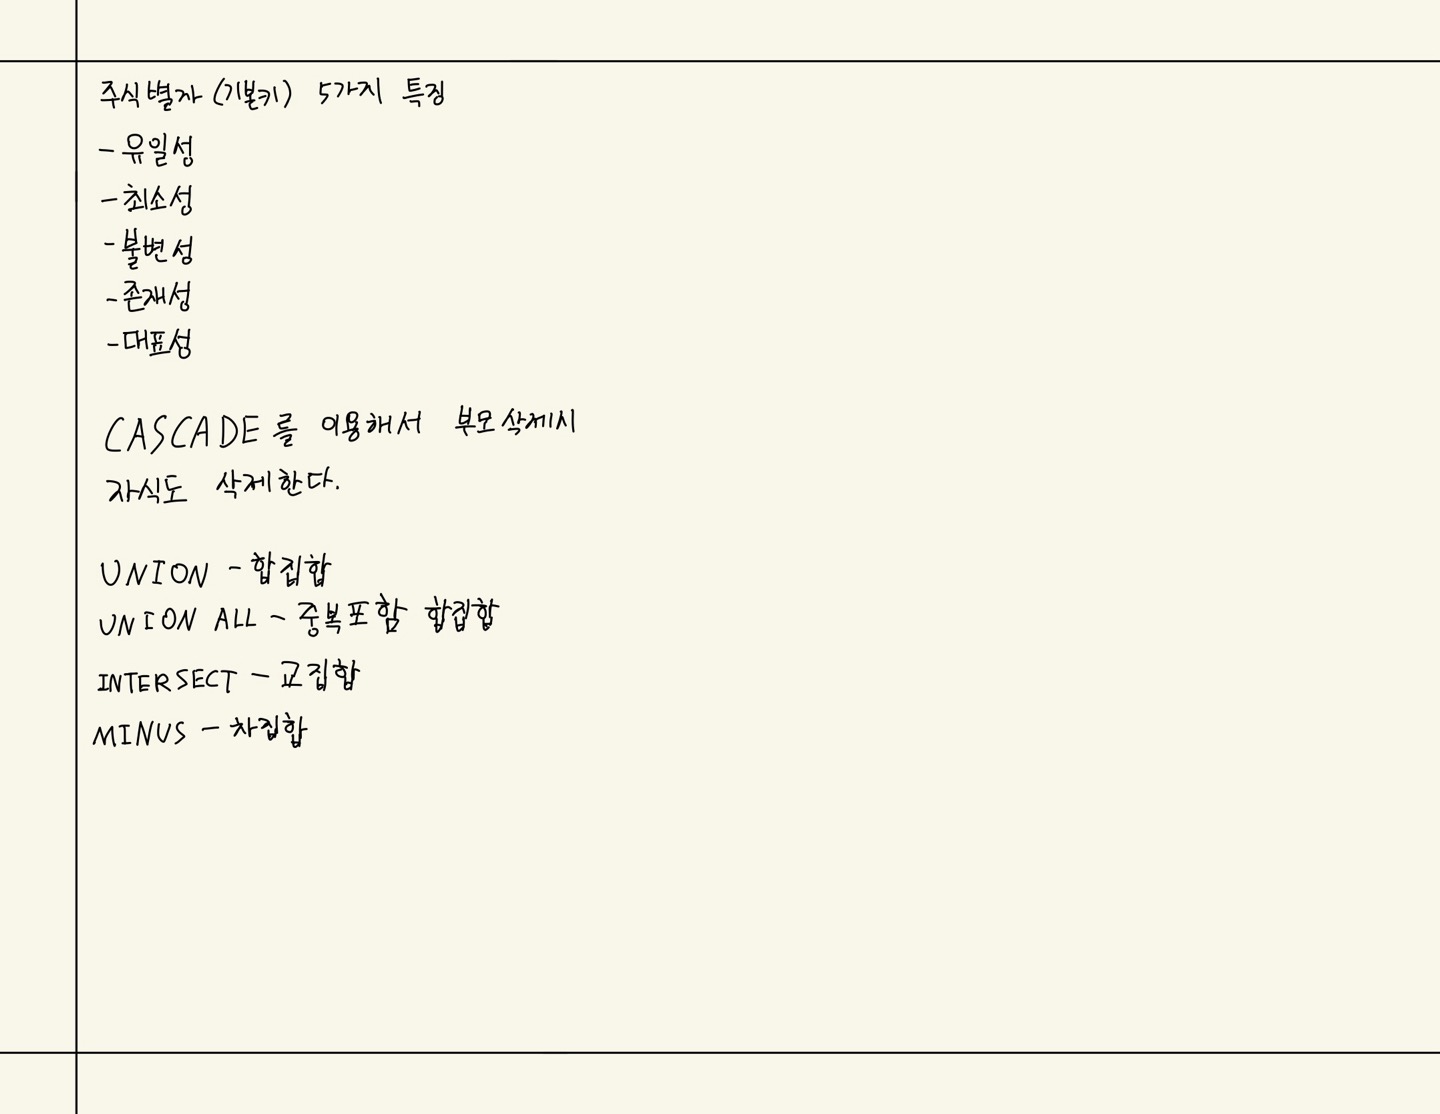 주식별자 (기본키) 5가지 특징
- 유일성
- 최소성
- 불변성
- 존재성
- 대표성
CASCADE를 이용해서 부모삭제시
자식도 삭제한다.
UNION - 합집합
UNION ALL - 중복포함 합집합
INTERSECT - 교집합
MINUS - 차집합